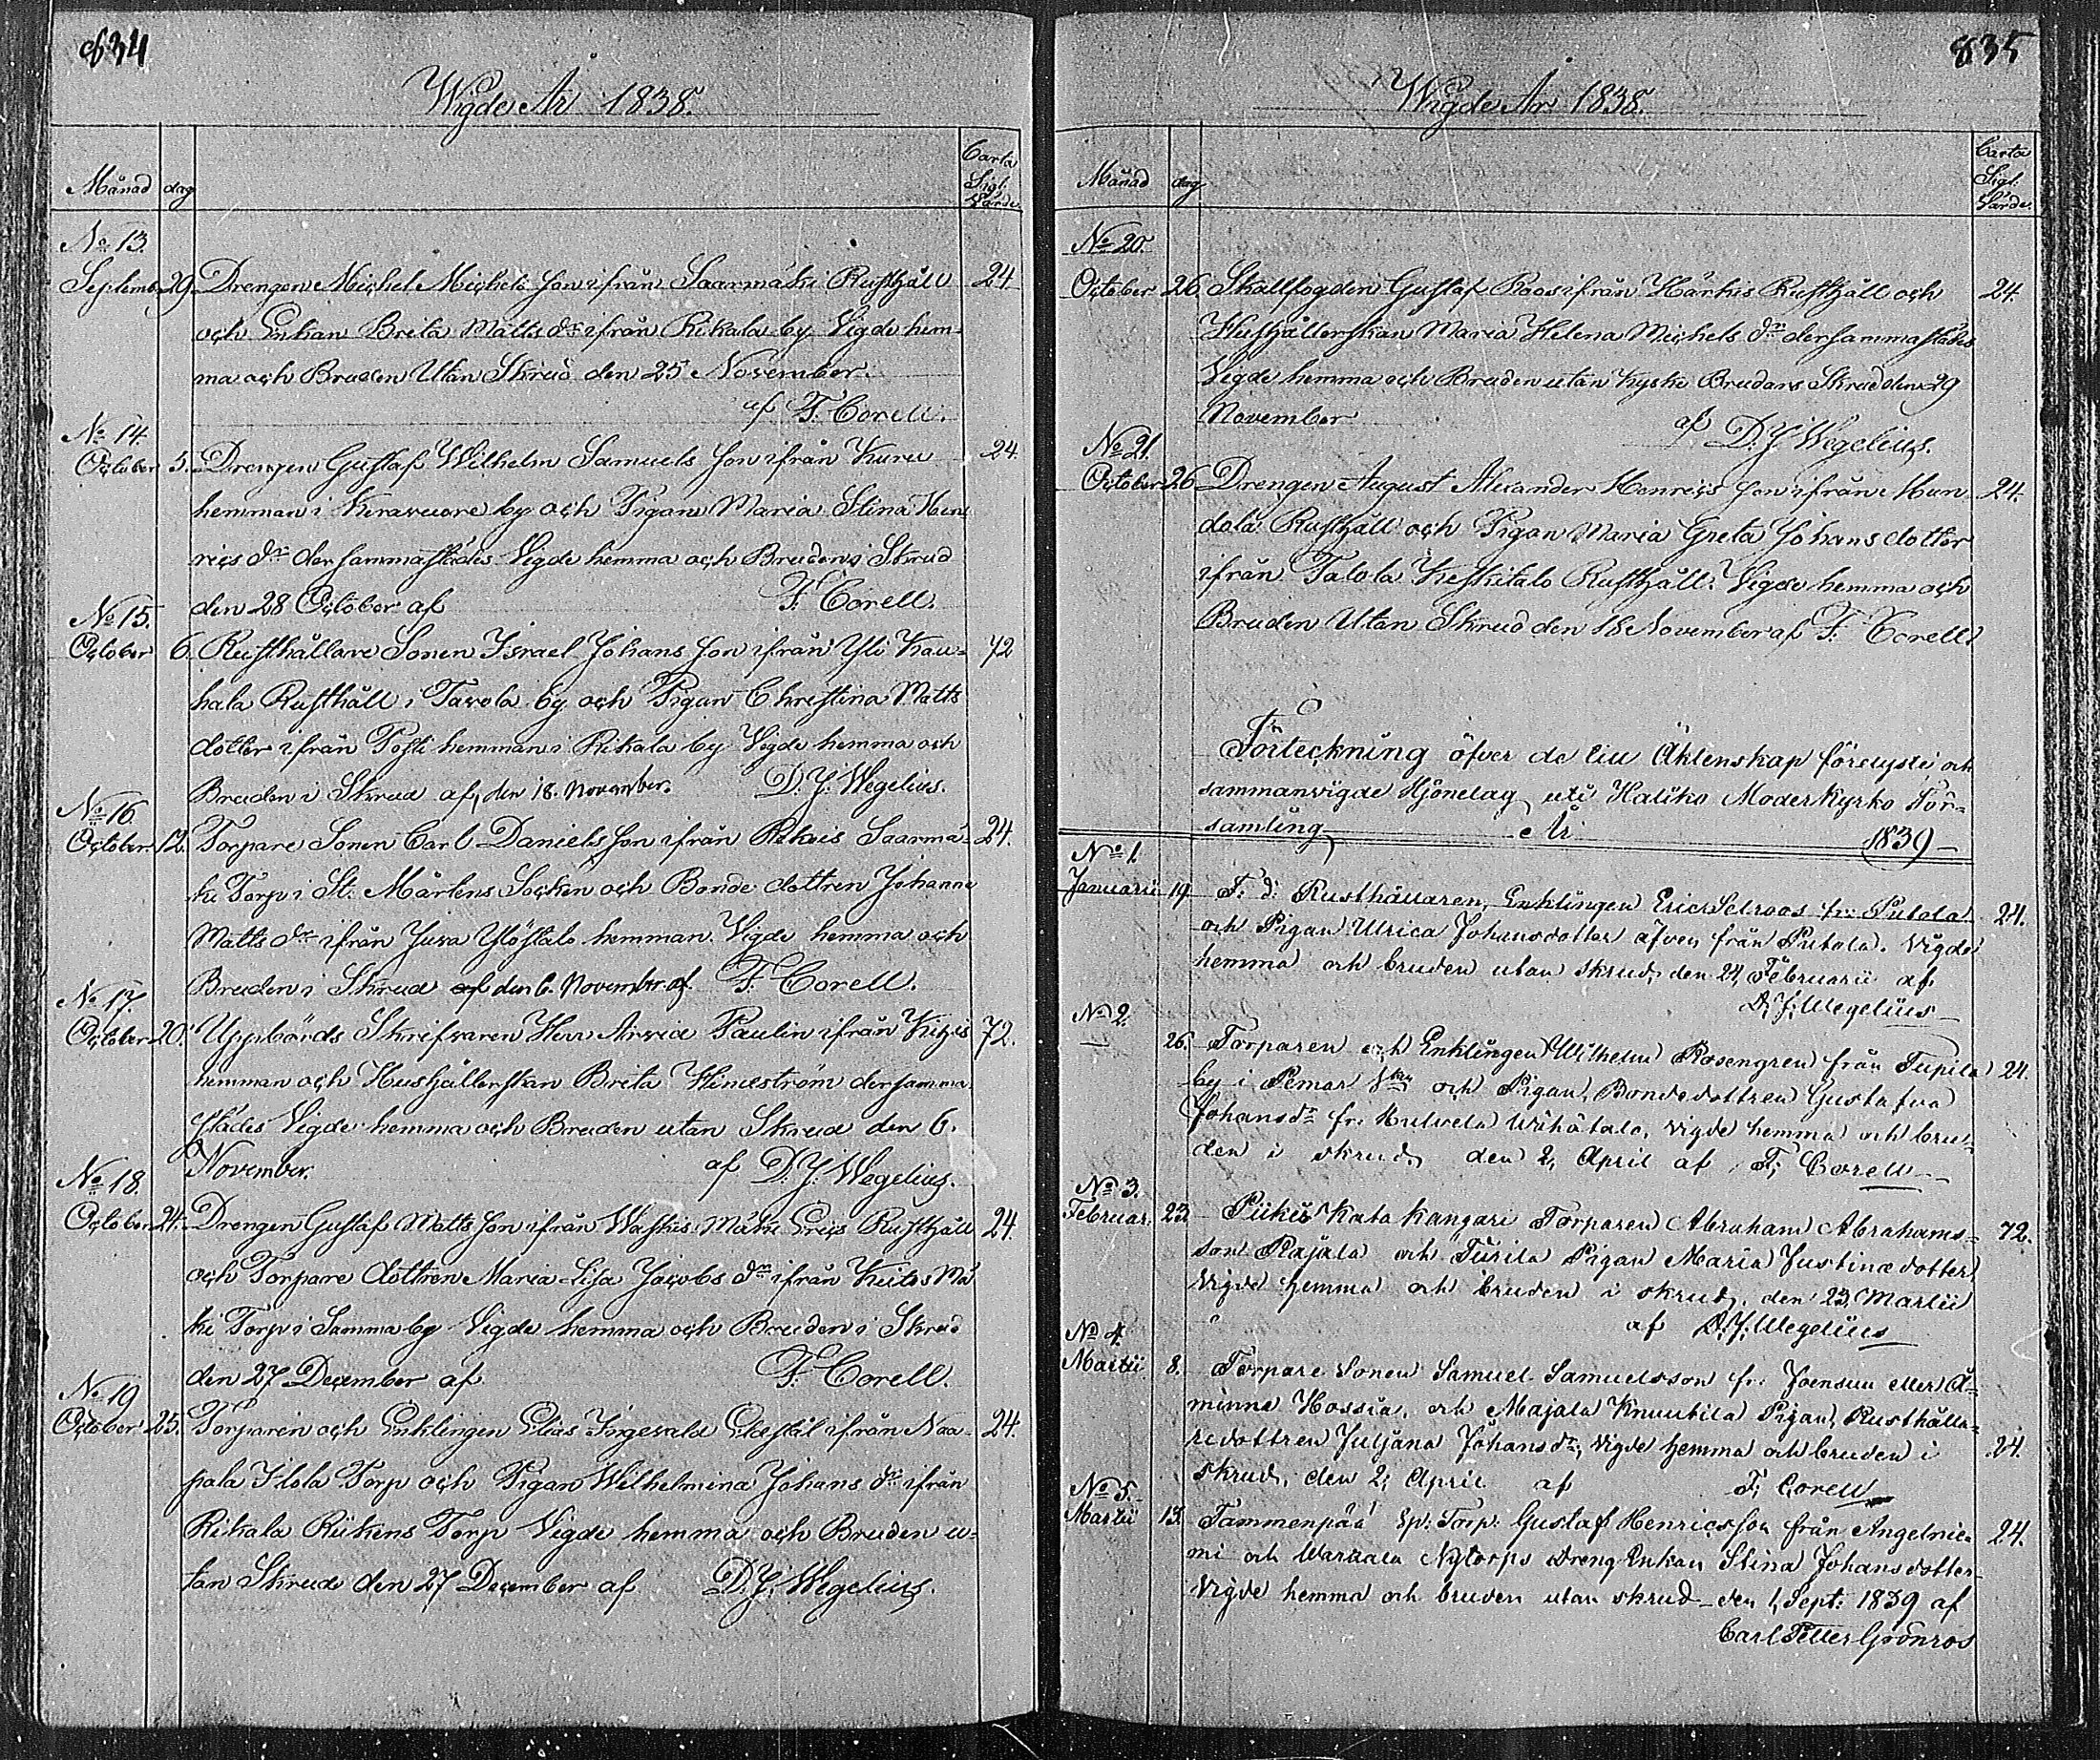 834
Wigde År 1838.
Månad dag Carta Sigl: Värde
No 13.
Septemb. 29. Drengen Michel Michels Son ifrån Saarmäki Rusthåll 24
och Enkan Brita Matts dr ifrån Rikala by Vigde hem-
ma och Bruden Utan Skrud den 25 November.
af F. Corell.
No 14.
October 5. Drengen Gustaf Wilhelm Samuels Son ifrån Kuru 24.
hemman i Keravuore by och Pigan Maria Stina Hen
rics dr dersammastädes Vigde hemma och Bruden i Skrud
den 28 October af F. Corell.
No 15.
October 6. Rusthållare Sonen Israel Johans Son ifrån Yli Kau- 72
hala Rusthåll i Tavola by och Pigan Christina Matts
dotter ifrån Posti hemman i Rikala by Vigde hemma och
Bruden i Skrud af, den 18. November. D. J. Wegelius.
No 16
October 12. Torpare Sonen Carl Daniels Son ifrån Rekois Saarmä- 24.
ki Torp i St. Mårtens Socken och Bonde dottren Johanna
Matts dr ifrån Juva Ylöstalo hemman. Vigde hemma och
Bruden i Skrud af den 6. November af F. Corell.
No 17.
October 20. Uppbörds Skrifvaren Herr Arvid Paulin ifrån 72.
hemman och Hushållerskan Brita Himeström dersamma-
städes Vigde hemma och Bruden utan Skrud den 6.
November. af D. J. Wegelius.
No 18.
October 24. Drengen Gustaf Matts Son ifrån Waskis Mäki Erics Rusthåll 24.
och Torpare dottren Maria Lisa Jacobs dr ifrån Mä
ki Torp i Samma by Vigde hemma och Bruden i Skrud
den 27 December af F. Corell.
No 19
October 25. Torparen och Enklingen Elias ifrån Naa- 24.
pala Ilola Torp och Pigan Wilhelmina Johans dr ifrån
Rikala Torp Vigde hemma och Bruden u-
tan Skrud den 27 December af D. J. Wegelius.
835
Wigde År 1838.
Månad dag Carta Sigl: Värde
No 20.
October 26. Skallfogden Gustaf Roos ifrån Härkis Rusthåll och 24.
Hushållerskan Maria Helena Michels dr dersammastädes
Vigde hemma och Bruden utan Kyske Brudars Skrud den 29
November af D. J. Wegelius.
No 21.
October 26 Drengen August Alexander Henrics Son ifrån Mun 24.
dola Rusthåll och Pigan Maria Greta Johansdotter
ifrån Talola Keskitalo Rusthåll. Vigde hemma och
Bruden Utan Skrud den 18 November af F. Corell
Förteckning öfver de till Äktenskap förelyste och
sammanvigde Hjonelag uti Haliko Moderkyrko För-
samling År 1839
No 1.
Januarii 19 F. d. Rusthållaren, Enklingen Eric Selroos fr. Putola 24.
och Pigan Ulrica Johansdotter äfven från Putola. Vigde
hemma och bruden utan skrud, den 24 Februarii af
D. J. Wegelius
No 2.
— 26. Torparen och Enklingen Wilhelm Rosengren från Tupila 24.
by i Pemar Skn och Pigan, Bondedottren Gustafva
Johansdr fr. Wihätalo, vigde hemma och bru-
den i skrud, den 2 April af F. Corell
No 3.
Februar. 23 Piikis Kata Kangari Torparen Abraham Abrahams- 72.
son Rajala och Turila Pigan Maria Justinædotter
vigde hemma och bruden i skrud, den 23 Martii
af D. J. Wegelius
No 4.
Martii 8. Torpare Sonen Samuel Samuelsson fr. Joensuu eller Å-
minne Hossia, och Majala Knuutila Pigan, Rusthålla-
redottren Juljana Johansdr, vigde hemma och bruden i 24.
skrud, den 2 April af F. Corell
No 5.
Martii 13. Tammenpää Torp. Gustaf Henricsson från Angelnie- 24.
mi och Nytorps Dreng Enkan Stina Johansdotter
vigde hemma och bruden utan skrud den 1 Sept: 1839 af
Carl Petter Grönros